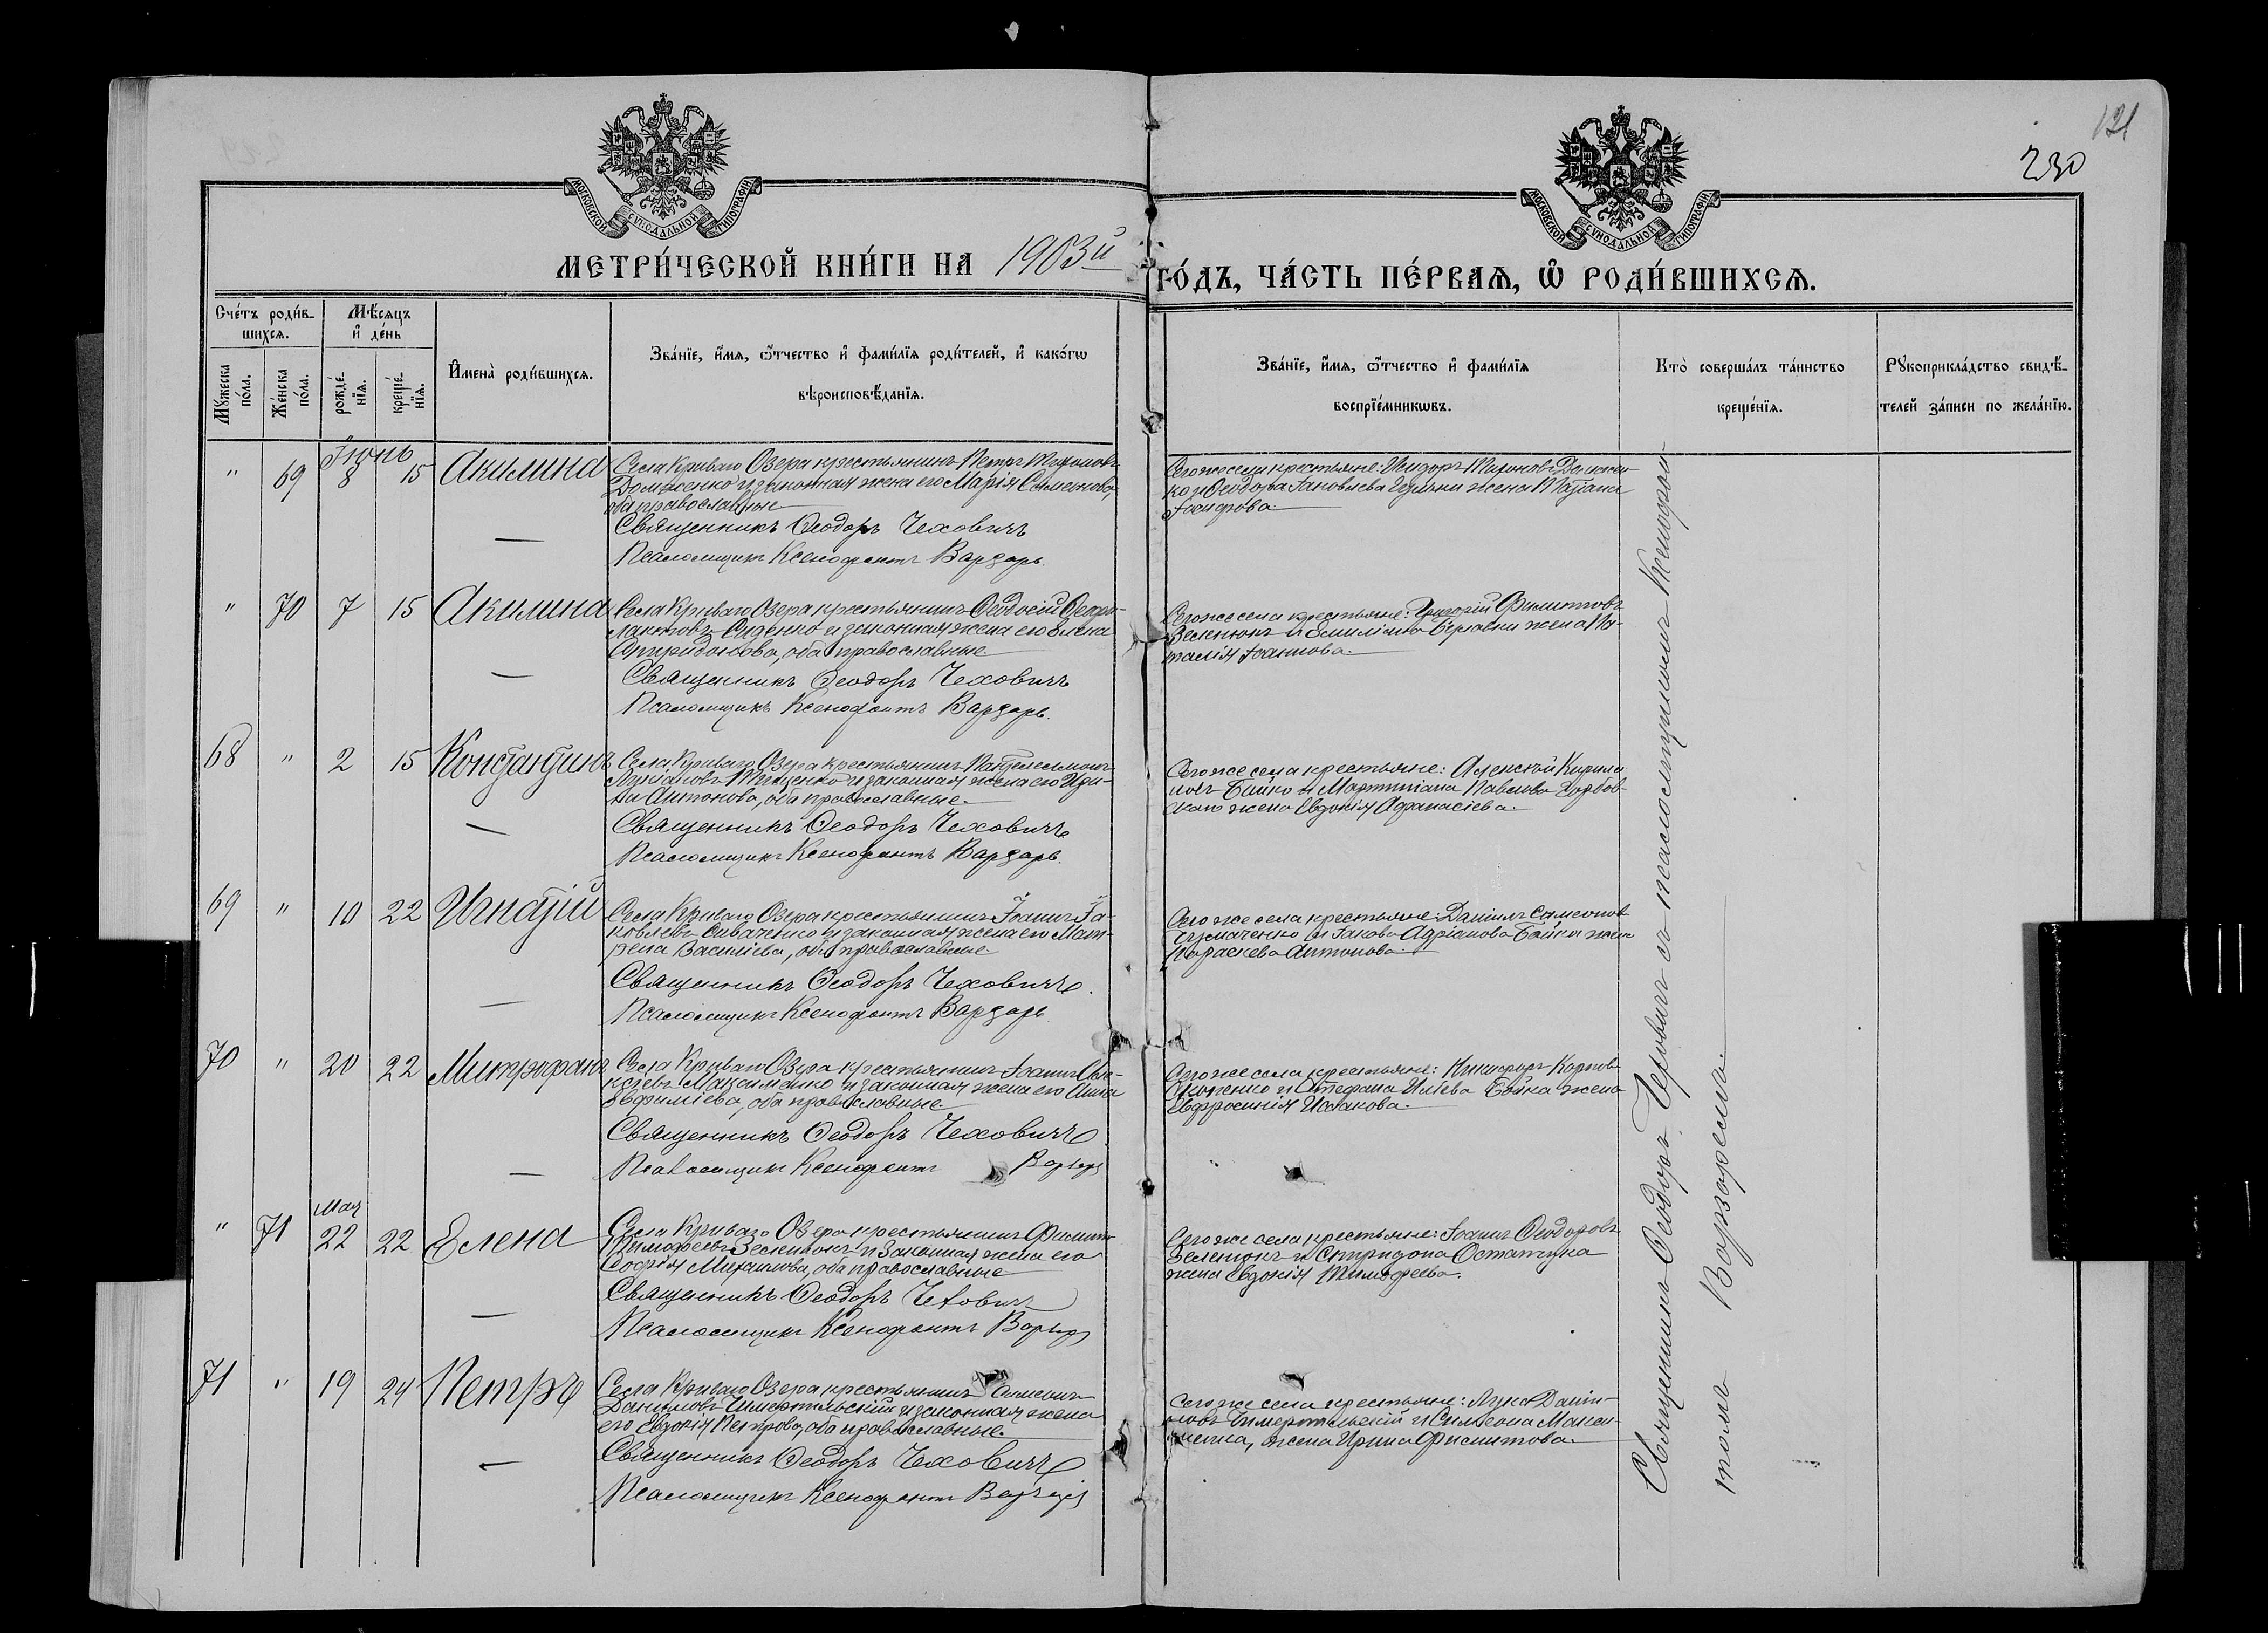 121
230
МОСКОВСКОЙ СѴНОДАЛЬНОЙ ТИПОГРАФІИ
МОСКОВСКОЙ СѴНОДАЛЬНОЙ ТИПОГРАФІИ
МЕТРИ́ЧЕСКОЙ КНИ́ГИ НА 1903й ГО́ДЪ, ЧА́СТЬ ПЕ́РВАЯ, Ѡ РОДИ́ВШИХСЯ.
Сче́тъ роди́в-
шихся.
Мѣ́сяцъ
и҆ де́нь
Мꙋ́жеска
по́ла.
Же́нска
по́ла.
рожде́-
нїѧ.
креще́-
нїѧ.
И҆мена̀ роди́вшихсѧ.
Зва́нїе, и҆́мѧ, ѻ҆́тчество и҆ фами́лїѧ роди́телей, и҆ како́гѡ
вѣроисповѣ́данїѧ.
Зва́нїе, и҆́мѧ, ѻ҆́тчество и҆ фами́лїѧ
воспрїе́мникѡвъ.
Кто̀ соверша́лъ та́инство
креще́нїѧ.
Рꙋкоприкла́дство свидѣ́-
телей за́писи по жела́нїю.
Іюнь
" 69 8 15 Акилина
Села Криваго Озера крестьянинъ Петръ
Домженко и законная жена его Марія Симеонова,
оба православные
Священникъ Ѳеодоръ Чеховичъ
Псаломщикъ Ксенофонтъ Варзарь.
Сего же села крестьяне: Исидоръ
и Ѳеодора Іаковлева жена
" 70 7 15 Акилина
Села Криваго Озера крестьянинъ Ѳеодосій Ѳеофи-
лактовъ Сиденко и законная жена его Елена
Спиридонова, оба православные
Священникъ Ѳеодоръ Чеховичъ
Псаломщикъ Ксенофонтъ Варзарь.
Сего же села крестьяне: Григорій Филиповъ
Зеленюкъ и Емиліана жена На-
талія Іоаннова.
68 " 2 15 Константинъ
Села Криваго Озера крестьянинъ Пантелеимонъ
Лукіановъ Тищенко и законная жена его Ири-
на Антонова, оба православные.
Священникъ Ѳеодоръ Чеховичъ
Псаломщикъ Ксенофонтъ Варзарь.
Сего же села крестьяне: Алексій Кирило
новъ Бойко и Мартиніана Павлова Горбов-
скаго жена Евдокія Аѳанасіева.
69 " 10 22 Игнатій
Села Криваго Озера крестьянинъ Іоаннъ Іа-
ковлевъ Сиваченко и законная жена его Мат-
рена Василіева, оба православные.
Священникъ Ѳеодоръ Чеховичъ.
Псаломщикъ Ксенофонтъ Варзарь
Сего же села крестьяне: Даніилъ Симеоновъ
и Іакова Адріанова Бойка жена
Параскева Антонова.
70 " 20 22 Митрофанъ
Села Криваго Озера крестьянинъ Іоаннъ Алек-
сіевъ Максименко и законная жена его Анна
Евфиміева, оба православные.
Священникъ Ѳеодоръ Чеховичъ
Псаломщикъ Ксенофонтъ Варзарь
Сего же села крестьяне: Никифоръ Карповъ
и Стефана Иліева Бойка жена
Евфросинія Исаакова.
Мая
" 71 22 22 Елена
Села Криваго Озера крестьянинъ Филиппъ
Тимоѳеевъ Зеленюкъ и законная жена его
Софія Михаилова, оба православные
Священникъ Ѳеодоръ Чеховичъ
Псаломщикъ Ксенофонтъ Варзарь
Сего же села крестьяне: Іоаннъ Ѳеодоровъ
Зеленюкъ и Спиридона Остапчука
жена Евдокія Тимоѳеева.
71 " 19 24 Петръ
Села Криваго Озера крестьянинъ Симеонъ
Даніиловъ и законная жена
его Евдокія Петрова, оба православные.
Священникъ Ѳеодоръ Чеховичъ
Псаломщикъ Ксенофонтъ Варзарь
Сего же села крестьяне: Лука Даніи-
ловъ и Симеона
жена Ирина Филиппова.
Священникъ Ѳеодоръ Чеховичъ и псаломщикомъ Ксенофон-
томъ Варзаремъ.